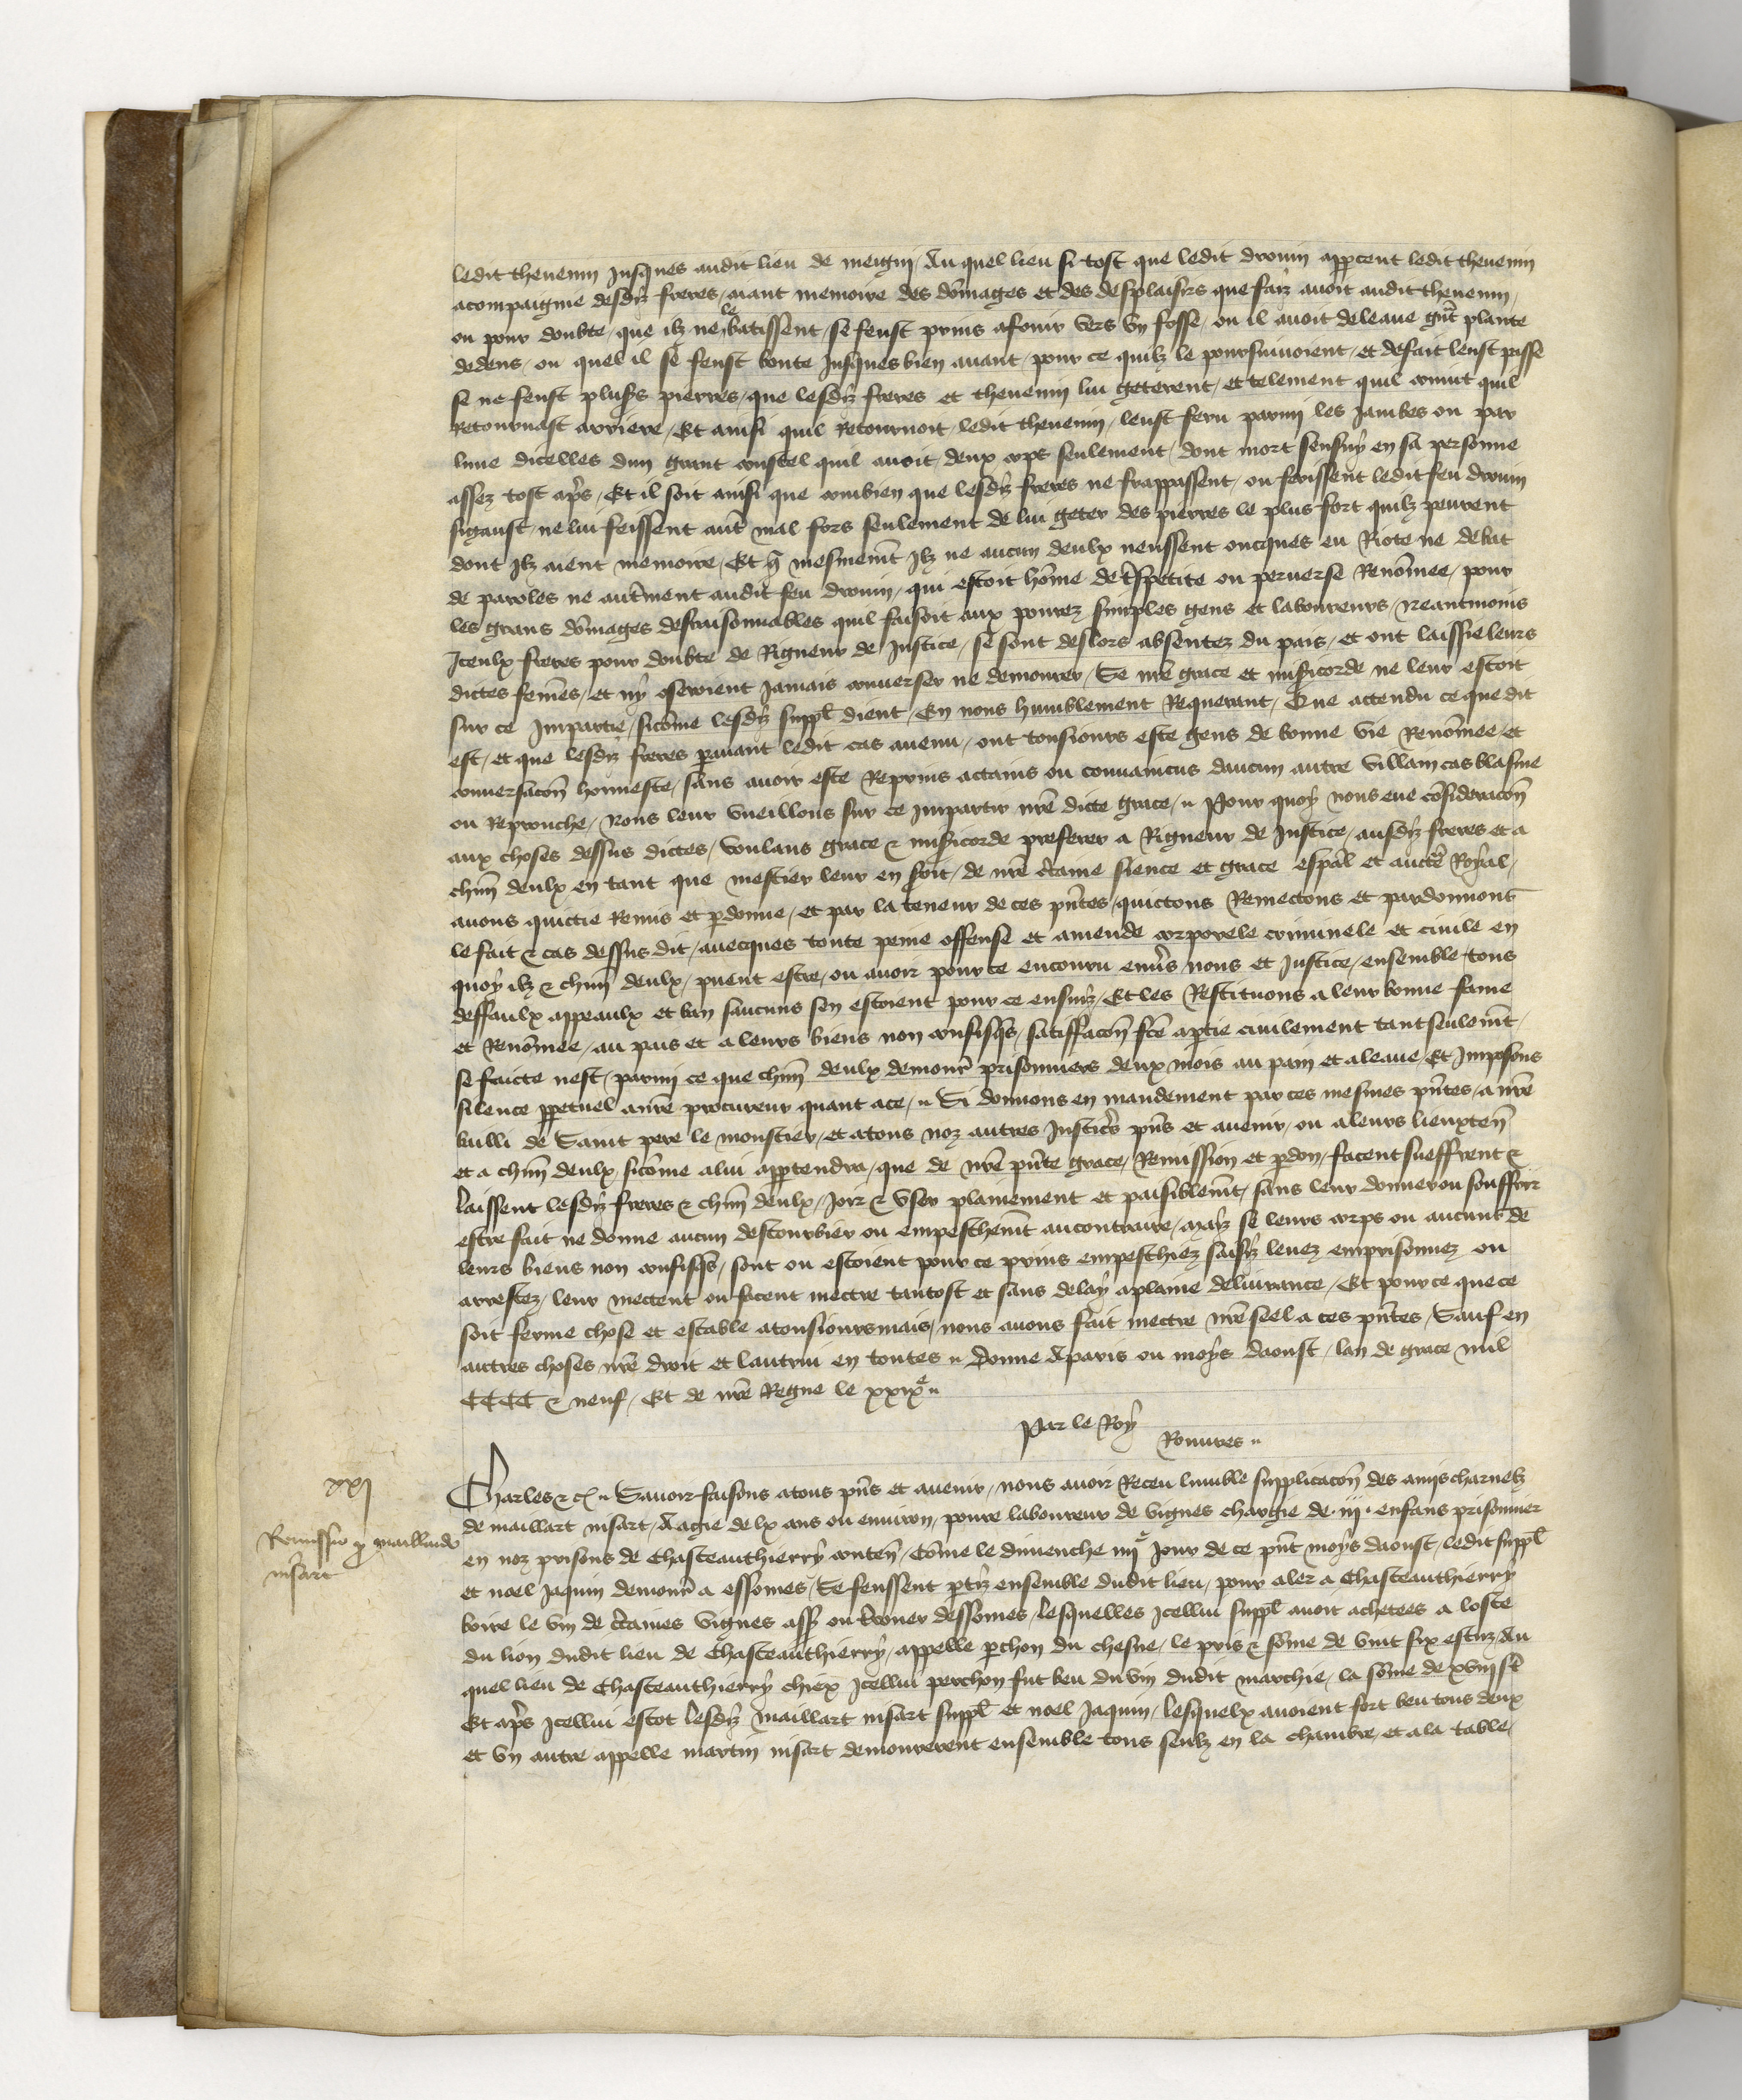 ledit thevenin Jusques audit lieu de meigni / Au quel lieu si tost que ledit drouin appcent ledit thevenin
acompaignie desdiz freres / aiant memoire des dōmages et des desplaisirs que faiz avoit audit thevenin /
ou pour doubte / que ilz ne le batissent / se feust prins afouir vers un fosse / ou il avoit de leaue gñt plante
dedens / ou quel il se feust boute Jusques bien avant / pour ce quilz le poursuivoient / et de fait leust passe
se ne feust plusʳs pierres / que lesdiz freres et thevenin lui geterent / et telement quil convint quil
Retournast arriere / Et ainsi quil Retournoit / ledit thevenin / leust feru parmi les Jambes ou par
lune dicelles dun grant coustel quil avoit / deux cops seulement / dont mort sensuy en sa personne
assez tost apʳs / Et il soit ainsi que combien que lesdiz freres ne frappassent / ou ferissent ledit feu drouin
sigaust / ne lui feissent aut̄ mal fors seulement de lui geter des pierres le plus fort quilz peurent
dont Ilz aient memoire / Et mesmemt̄ Ilz ne aucun deulx neussent oncques eu Riote ne debat
de paroles ne aut̄ment audit feu drouin / qui estoit hōme de t̄spetite ou perverse Renōmee / pour
les grans dōmages desraisonnables quil faisoit aux povrez simples gens et laboureurs / Neantmoins
Iceulx freres pour doubte de Rigueur de Justice / se sont deslors absentez du pais / et ont laissie leurs
dictes femēs / et ny oseroient Jamais converser ne demourer / Se nrē grace et misʳicorde ne leur estoit
sur ce Impartie / sicōme lesdiz suppl̄ dient / En nous humblement Requerant / Que actendu ce que dit
est / et que lesdiz freres pavant ledit cas avenu / ont tousiours este gens de bonne vie Renōmee / et
conversacōn honneste / sans avoir este Reprins actains ou convaincus daucun autre villain cas blasme
ou Reprouche / Nous leur vueillons sur ce Impartir nrē dicte grace /. Pour quoy nous eue cōsideracōn
aux choses dessus dictes / voulans grace & misʳicorde preferer a Rigueur de Justice / ausdiz freres et a
chūn deulx en tant que mestier leur en soit / de nrē c̄taine sience et grace esp̄al et auct̄e Royal /
avons quictie Remis et pdonne / et par la teneur de ces pñtes quictons Remectons et pardonnons
le fait & cas dessus dit / avecques toute peine offense et amende corporele criminele et civile en
quoy ilz & chūn deulx / puent estre / ou avoir pour ce encouru env̄s nous et Justice / ensemble tous
deffaulx appeaulx et ban saucuns sen estoient pour ce ensuiz / Et les Restituons a leur bonne fame
et Renōmee / au pais et a leurs biens non confisq̄s / satiffacōn fc̄e aptie civilement tant seulemt̄ /
se faicte nest / parmi ce que chūn deulx demourr̄ prisonniers deux mois au pain et a leaue / Et Imposons
silence ppetuel a nrē procureur quant ace /. Si donnons en mandement par ces mesmes pñtes / a nrē
bailli de Saint pere le moustier / et a tous noz autres Justicʳs pñs et avenir / ou a leurs lieuxteñ
et a chūn deulx / sicōme a lui apptendra / que de nrē pñte grace / Remission et pdon / facent sueffrent &
laissent lesdiz freres & chūn deulx / Joir & user plainement et paisiblemt̄ / sans leur donner ou souffrir
estre fait ne donne aucun destourbier ou empeschemt̄ au contraire / maiz se leurs corps ou aucuns de
leurs biens non confisq̄s / sont ou estoient pour ce prins empeschiez saisiz levez emprisonnez ou
arrestez / leur mectent ou facent mectre tantost et sans delay a plaine delivrance / Et pour ce que ce
soit ferme chose et estable a tousioursmais / nous avons fait mectre nrē seel a ces pñtes / Sauf en
autres choses nrē droit et lautrui en toutes . Donne A paris ou moys daoust / lan de grace mil
CCCC & neuf / Et de nrē Regne le xxixᵉ .
Par le Roy
Rouvres .
xxj
Charles &c̄ . Savoir faisons a tous pñs et avenir / nous avoir Receu lumble supplicacōn des amis charnelz
Remissio p maillardo
nisart
de maillart nisart / Aagie de lx ans ou environ / povre laboureur de vignes chargie de .iij. enfans prisonnier
en noz prisons de Chasteauthierry conteñ / Cōme le dimenche iiijᵉ Jour de ce pñt moys daoust / ledit suppl̄
et noel Jaquin demourñ a essomes / Se feussent ptiz ensemble dudit lieu / pour aler a Chasteauthierry
boire le vin de c̄taines vignes assiz ou t̄rouer dessomes / lesquelles Icellui suppl̄ avoit achetees a loste
du lion dudit lieu de Chasteauthierry / appelle pchon du chesne / le pris & sōme de vint six escuz / Au
quel lieu de Chasteauthierry chiex Icellui perchon fut beu du vin dudit marchie / la sōme de xviij s̄
Et apʳs Icellui escot lesdiz Maillart nisart suppl̄ et noel Jaquin / lesquelx avoient fort beu tous deux
et un autre appelle martin nisart demourerent ensemble tous seulz en la chambre / et a la table /